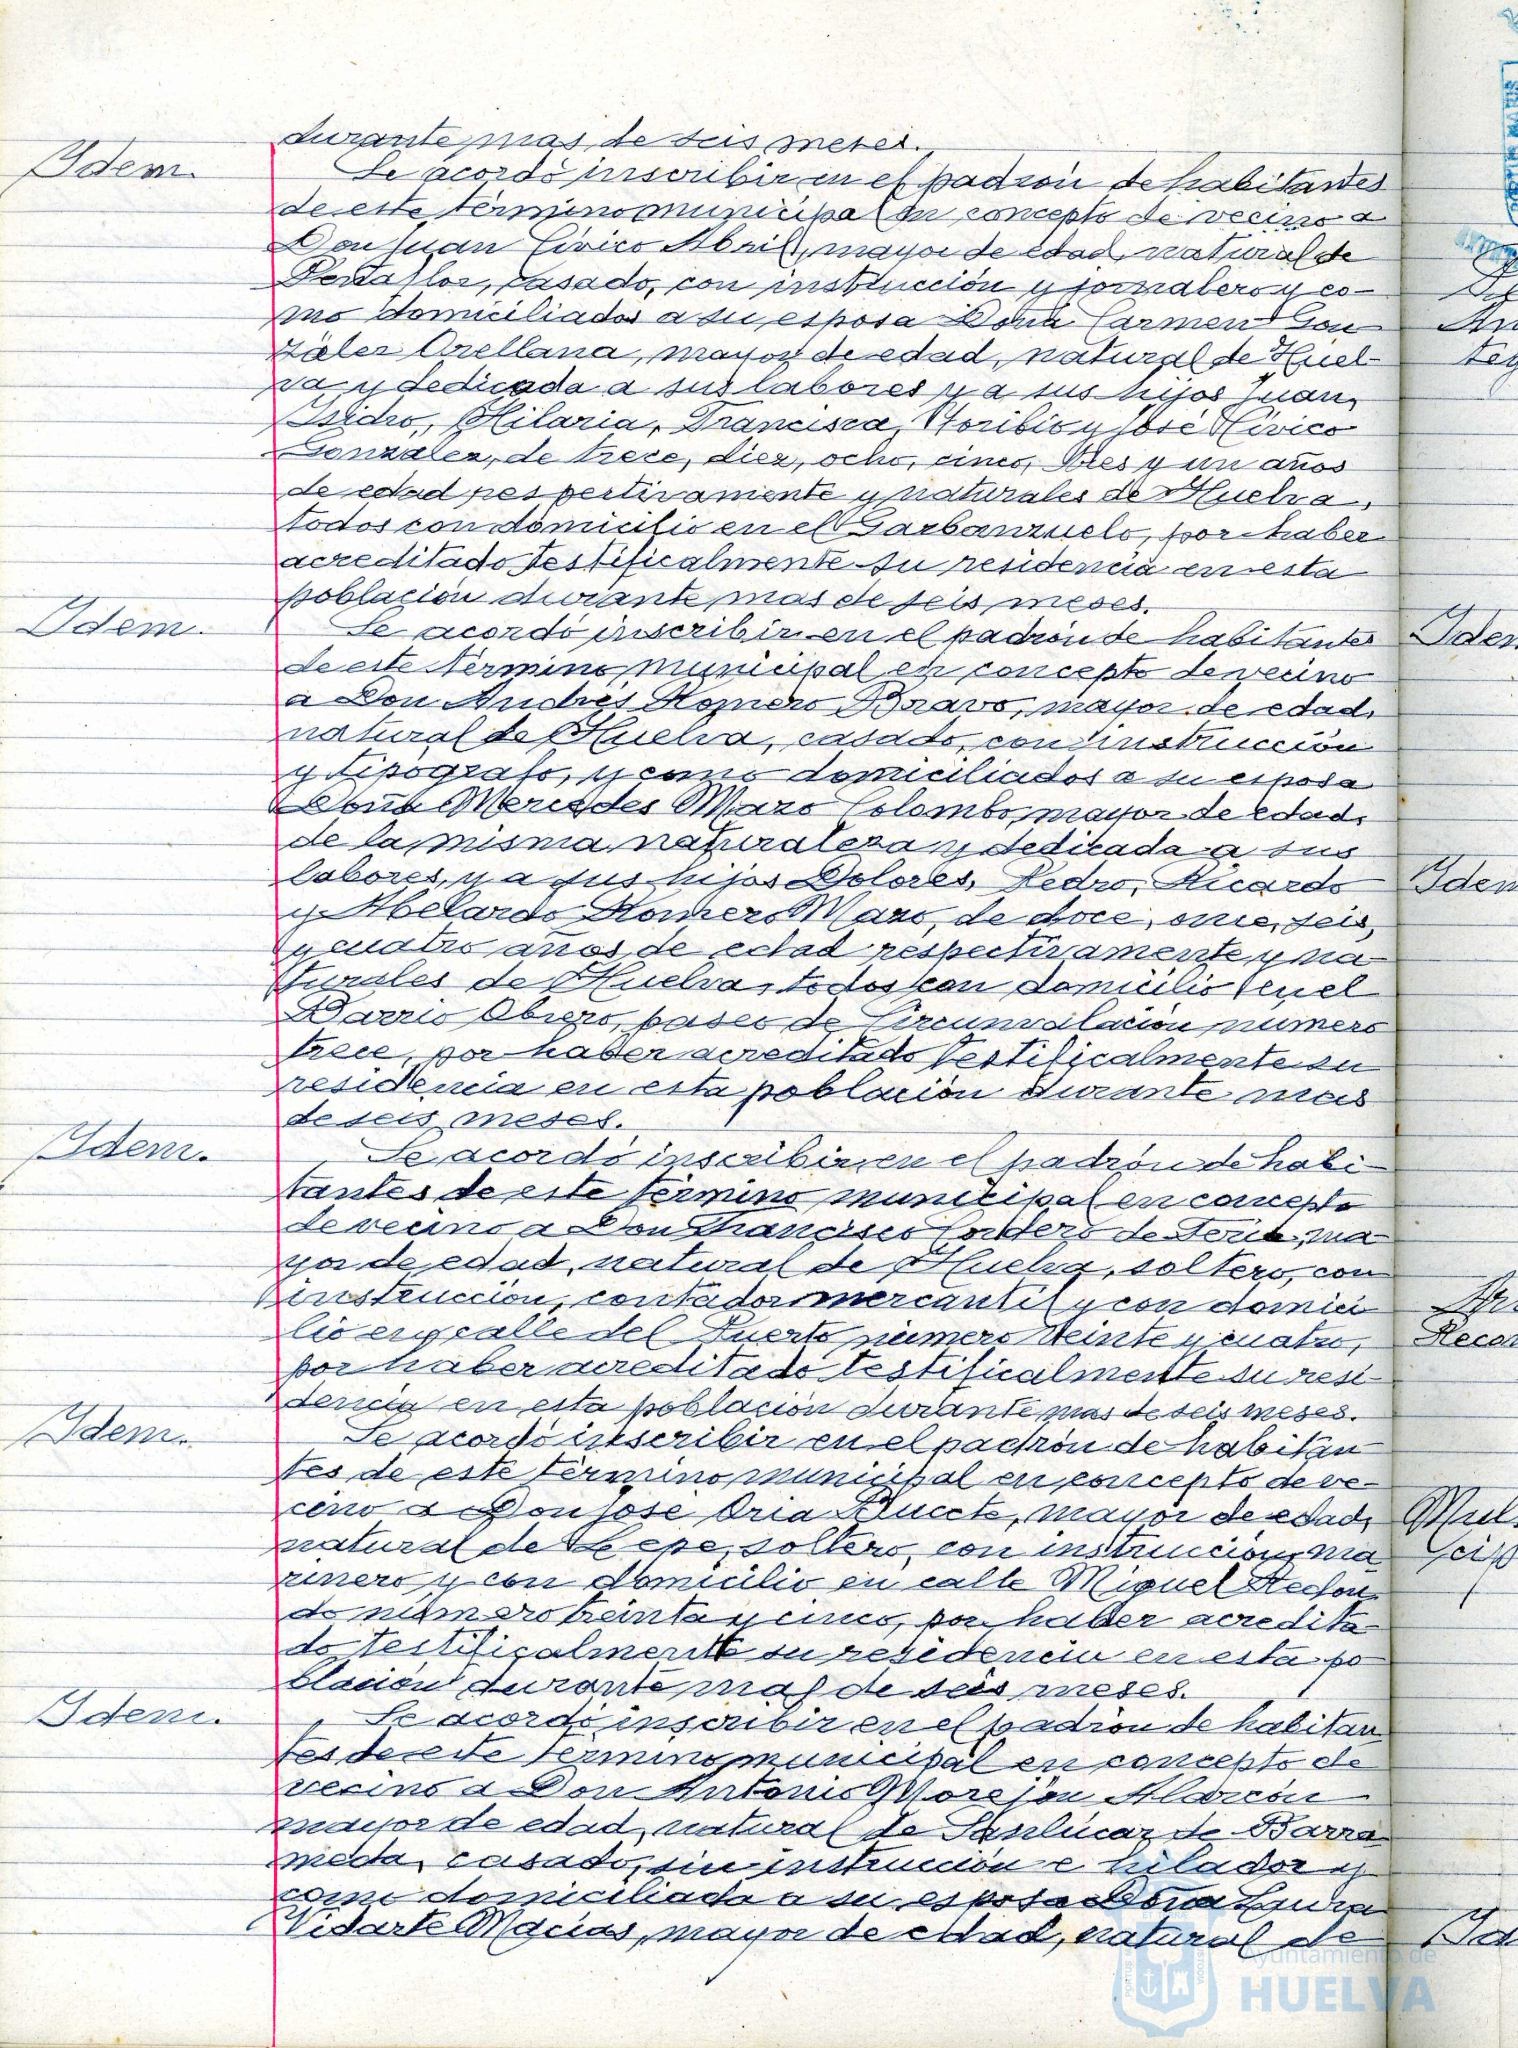 durante mas de seis meses.
Idem.
Se acordó inscribir en el padrón de habitantes
de este término municipal en concepto de vecino a
Don Juan Cívico Abril, mayor de edad, natural de
Peñaflor, casado, con instrucción y jornalero y co-
mo domiciliados a su esposa Doña Carmen Gon
zález Orellana, mayor de edad, natural de Huel-
va y dedicada a sus labores y a sus hijos Juan,
Isidro, Hilaria, Francisca, Toribio y José Cívico
Gonzalez, de trece, diez, ocho, cinco, tres y un años
de edad respectivamente y naturales de Huelva,
todos con domicilio en el Garbanzuelo, por haber
acreditado testificalmente su residencia en esta
población durante mas de seis meses.
Idem.
Se acordó inscribir en el padrón de habitantes
de este término municipal en concepto de vecino
a Don Andrés Romero Bravo, mayor de edad,
natural de Huelva, casado, con instrucción
y tipógrafo, y como domiciliados a su esposa
Doña Mercedes Mazo Colombo, mayor de edad,
de la misma naturaleza y dedicada a sus
labores, y a sus hijos Dolores, Pedro, Ricardo
y Abelardo Romero Mazo, de doce, once, seis,
y cuatro años de edad respectivamente y na-
turales de Huelva, todos con domicilio en el
Barrio Obrero, paseo de Circunvalación número
trece, por haber acreditado testificalmente su
residencia en esta población durante mas
de seis meses.
Idem.
Se acordó inscribir en el padrón de habi-
tantes de este término municipal en concepto
de vecino a Don Francisco Cordero de, ma-
yor de edad, natural de Huelva, soltero, con
instrucción, contador mercantil y con domici
lio en calle del Puerto número veinte y cuatro,
por haber acreditado testificalmente su resi-
dencia en esta población durante mas de seis meses.
Idem.
Se acordó inscribir en el padrón de habitan
tes de este término municipal en concepto de ve-
cino a Don José Oria, mayor de edad,
natural de Lepe, soltero, con instrucción, ma
rinero y con domicilio en calle Miguel Redon
do número treinta y cinco, por haber acredita
do testificalmente su residencia en esta po
blación durante mas de seis meses.
Idem.
Se acordó inscribir en el padrón de habitan
tes de este término municipal en concepto de
vecino a Don Antonio Morejón Alarcón
mayor de edad, natural de Sanlúcar de Barra
meda, casado, sin instrucción e hilador y
como domiciliada a su esposa Doña Laura
Vidarte Macías, mayor de edad, natural de
Ayuntamiento de
HUELVA